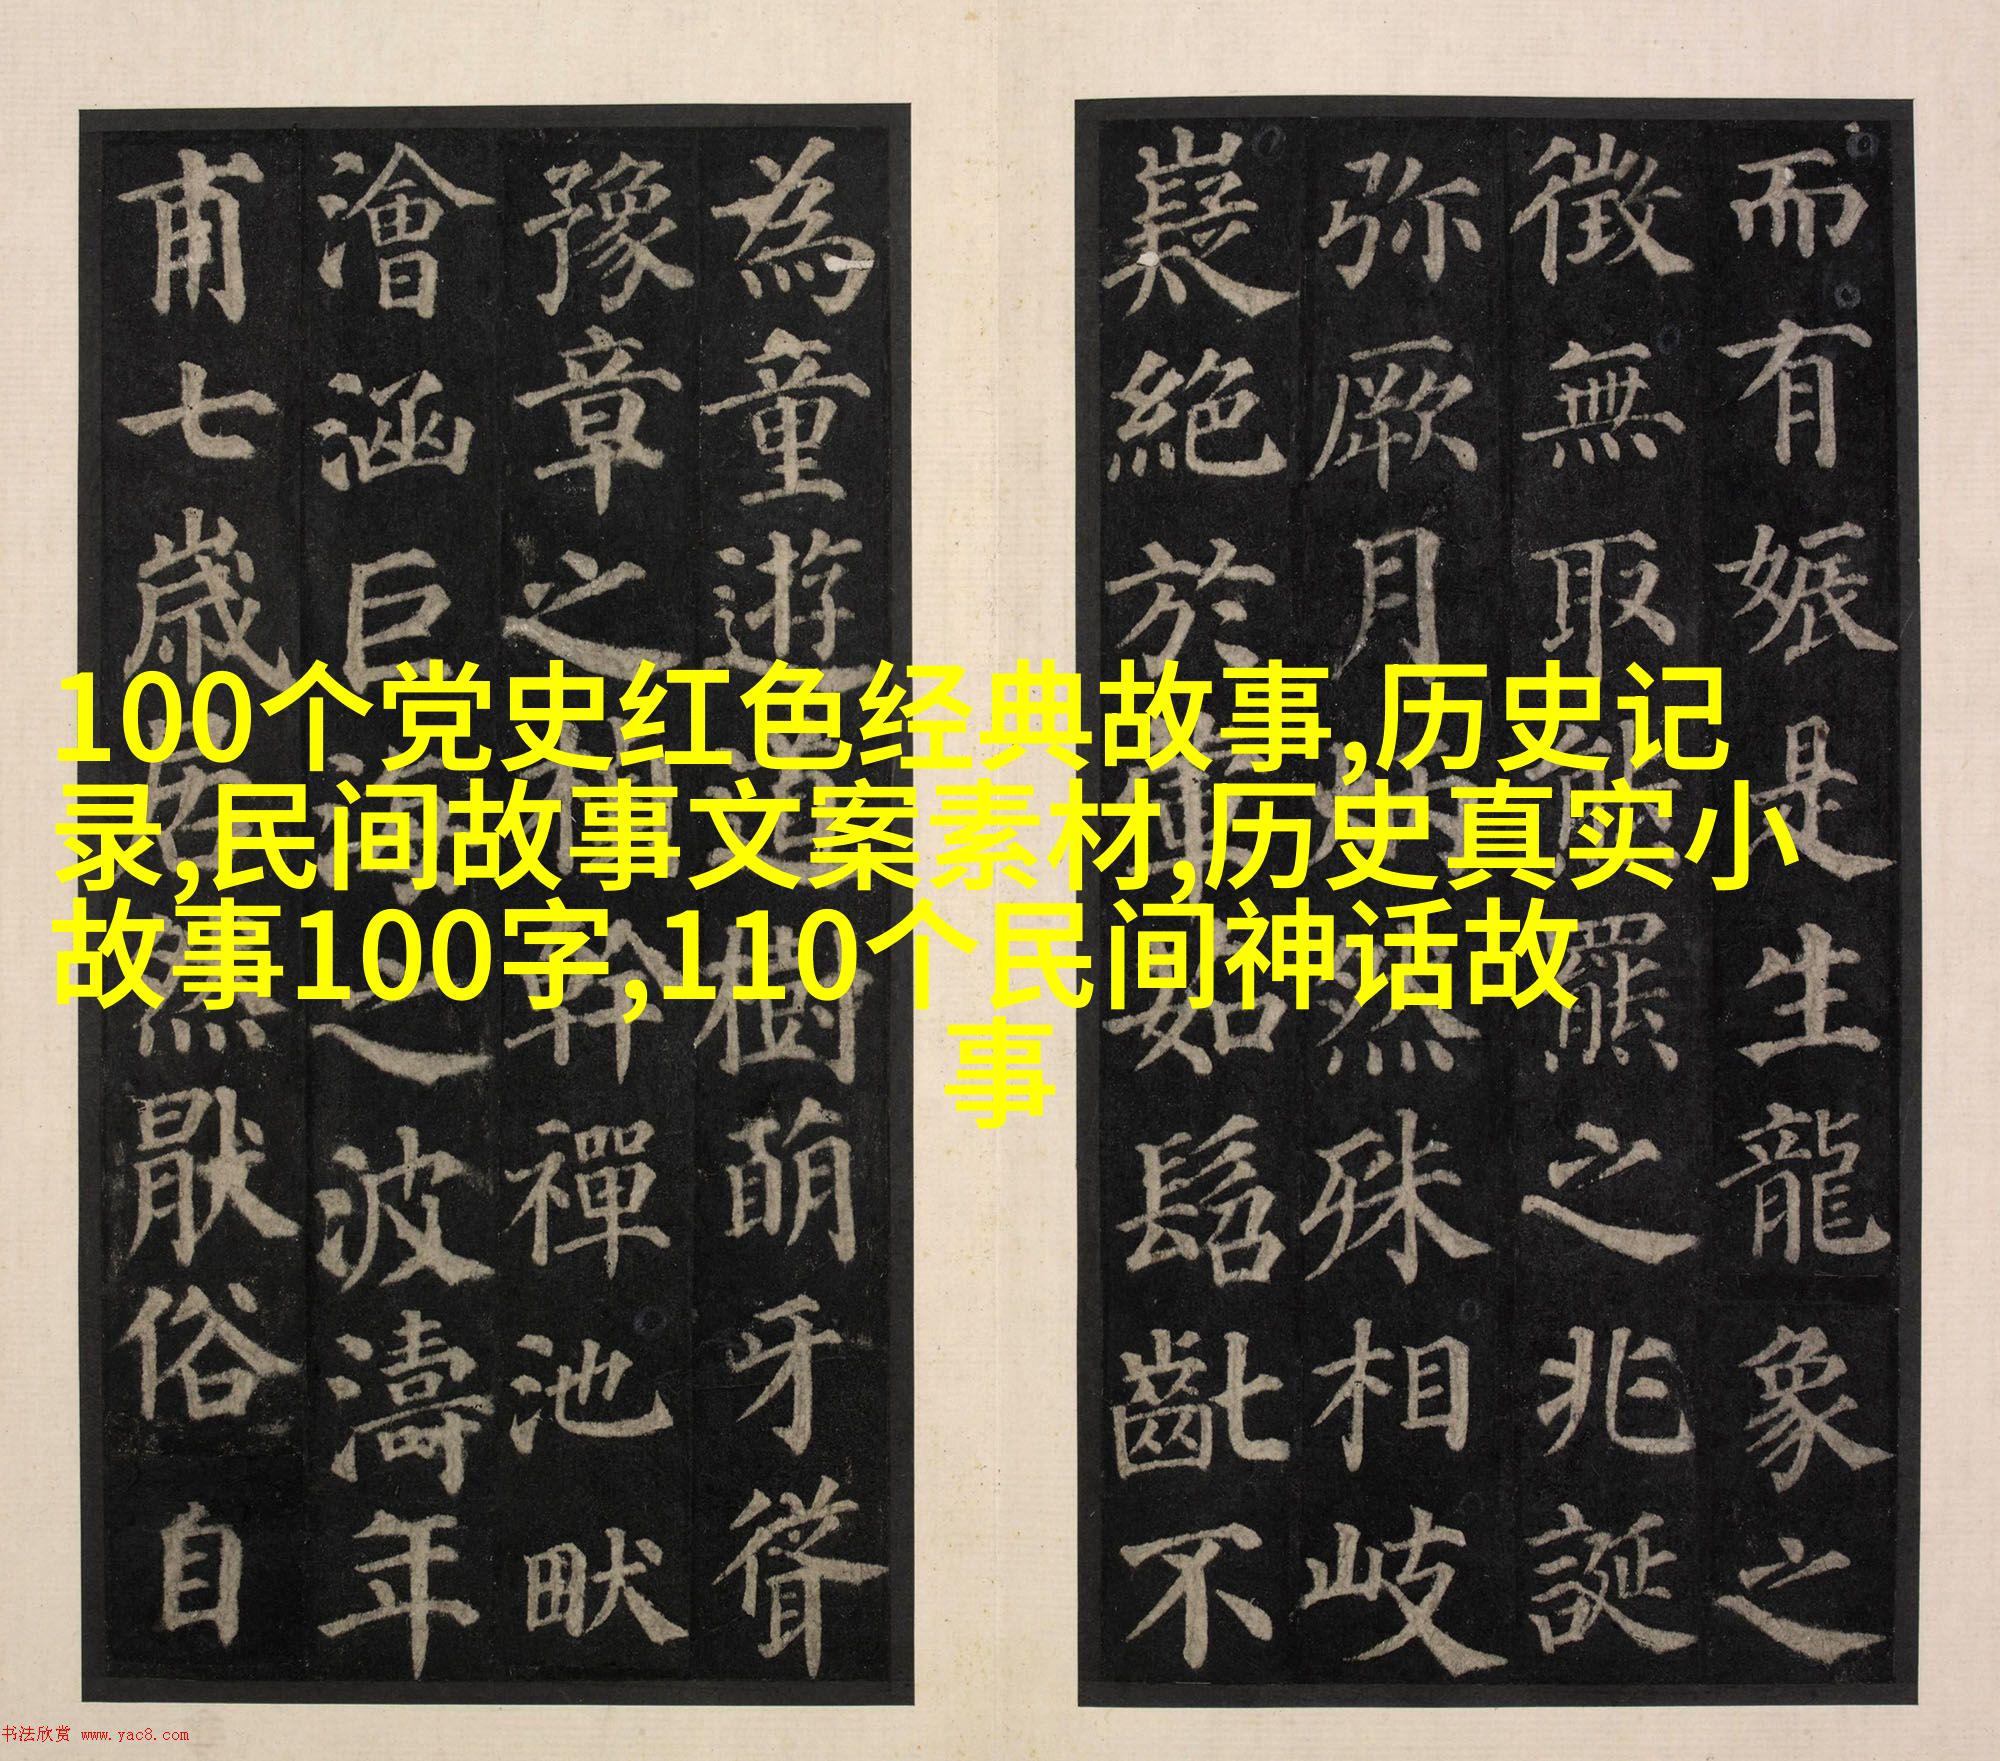 而有娠是生龍象之
徵無取熊羆之兆誕
弥厥月炳然殊相岐
嶷絕於葷茹髫齔不
為童遊道樹萌牙聳
豫章之楨幹禪池畎
澮涵巨海之波濤年
甫七歲居然厭俗自
100个党史红色经典故事,历史记
录,民间故事文案素材,历史真实小
故事100字,110个民间神话故
事
书法欣赏 www.yac8.com